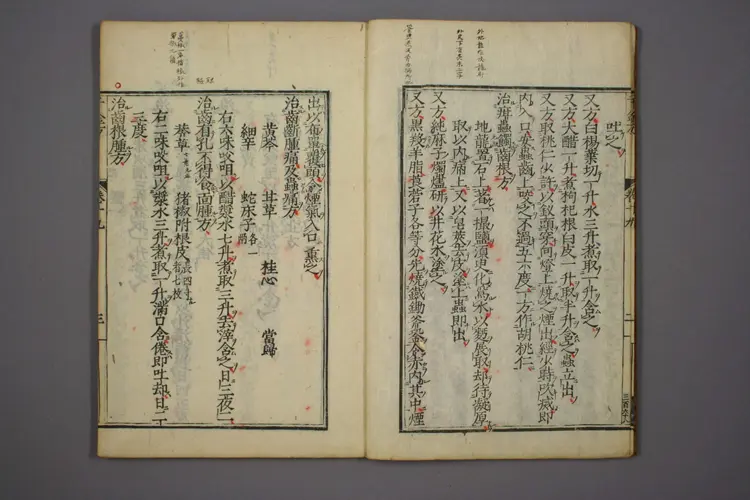 吐之
又方白楊葉切一升水三升煮取一升含之
又方大醋一升煮枸杞根白皮一升取半升含之蟲立出
又方取桃仁少許以釵頭穿向燈上燒之煙出經少時吹滅即
內入口安蟲齒上咬之不過五六度一方作胡桃仁
治疳蟲蝕齒根方
地龍置石上著一撮鹽須臾化為水以麵展取却待凝厚
取以內痛上又以皂莢去皮塗上蟲即出
又方純麻子燭燼研以井花水塗之
又方黑羖羊脂莨菪子各等分先燒鐵鋤斧銎令赤內其中煙
出以布單覆頭令煙氣入口熏之
治齒齗腫痛及蟲痛方
黃芩 甘草 桂心 當歸
細辛 蛇床子各一兩
右六味㕮咀以醋漿水七升煮取三升去滓含之日三夜二
治齒有孔不得食面腫方
莽草十葉 豬椒附根皮長四寸者七枚
右二味㕮咀以漿水三升煮取一升滿口含倦即吐却日二
三度
治齒根腫方
卷十九
二
三